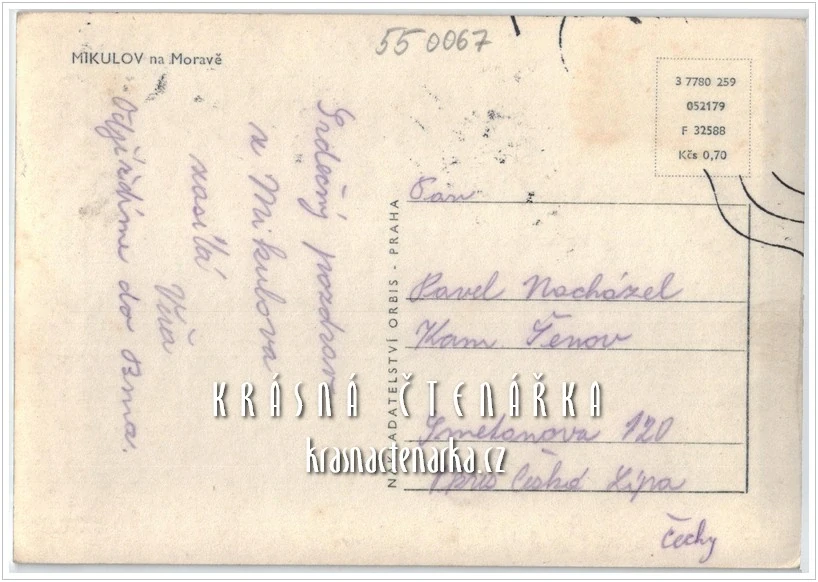 55 0067
MIKULOV na Moravě
3 7780 259
052179
F 32588
Kčs 0,70
Srdečný pozdrav
z Mikulova
zasílá
Víťa
Odjíždíme do Brna.
NAKLADATELSTVÍ ORBIS - PRAHA
Pan
Pavel Nacházel
Kam Šenov
Smetanova 120
Česká Lípa
Čechy
KRÁSNÁ ČTENÁŘKA
krasnactenarka.cz